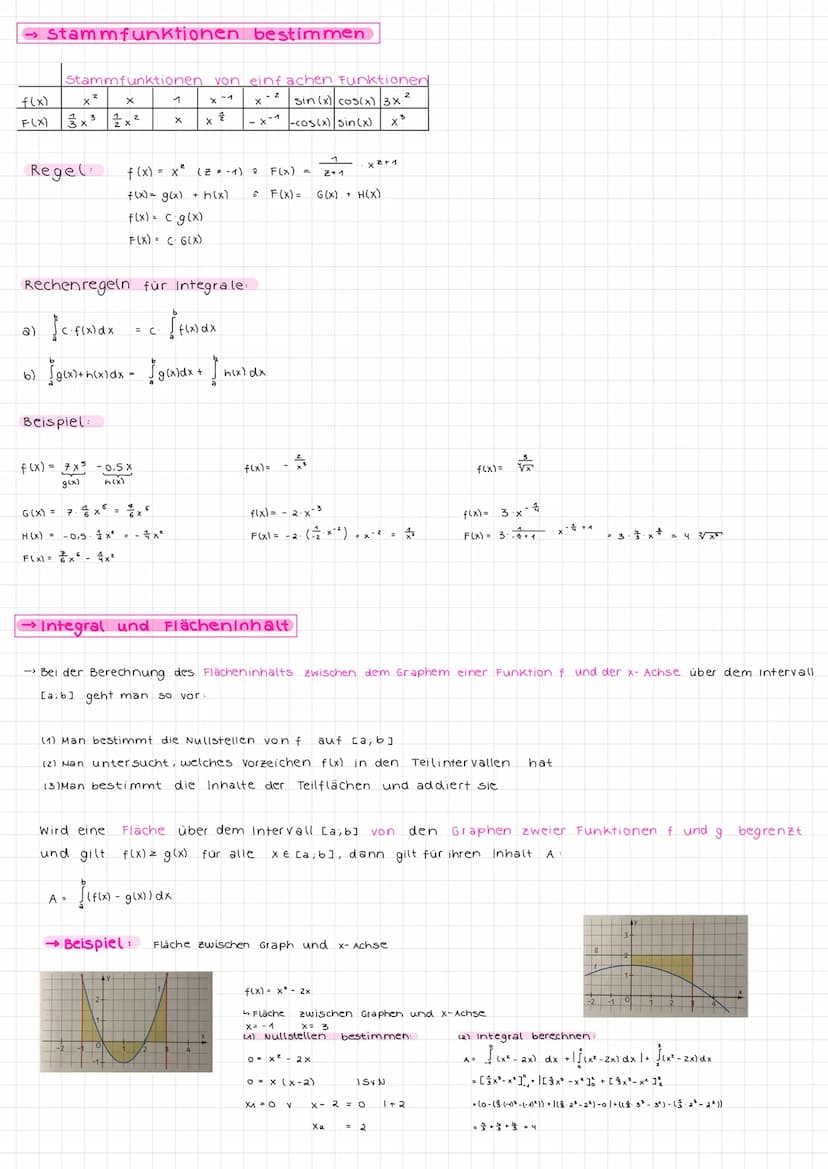 → Stammfunktionen bestimmen
Stammfunktionen von einfachen Funktionen
f(x) x² x 1 x⁻¹ x⁻² sin(x) cos(x) 3x²
F(x) 1/3 x³ 1/2 x² x - x⁻¹ -cos(x) sin(x) x³
Regel: f(x) = x^z (z ≠ -1) : F(x) = 1/(z+1) · x^(z+1)
f(x) = g(x) + h(x) : F(x) = G(x) + H(x)
f(x) = c·g(x)
F(x) = c·G(x)
Rechenregeln für Integrale:
a) ∫ₐᵇ c·f(x)dx = c· ∫ₐᵇ f(x)dx
b) ∫ₐᵇ g(x)+h(x)dx = ∫ₐᵇ g(x)dx + ∫ₐᵇ h(x)dx
Beispiel:
f(x) = 7x⁵ - 0,5x f(x) = - 2/x³ f(x) = 3/⁴√x
g(x) h(x)
G(x) = 7· 1/6 x⁶ = 7/6 x⁶ f(x) = - 2·x⁻³ f(x) = 3·x^(-1/4)
H(x) = -0,5· 1/2 x² = - 1/4 x² F(x) = -2·(1/-2 x⁻²) = x⁻² = 1/x² F(x) = 3· 1/(-1/4+1) · x^(-1/4+1) = 3· 4/3 · x^(3/4) = 4 ⁴√x³
F(x) = 7/6 x⁶ - 1/4 x²
→ Integral und Flächeninhalt
→ Bei der Berechnung des Flächeninhalts zwischen dem Graphem einer Funktion f und der x-Achse über dem Intervall
[a;b] geht man so vor:
(1) Man bestimmt die Nullstellen von f auf [a;b]
(2) Man untersucht, welches Vorzeichen f(x) in den Teilintervallen hat
(3) Man bestimmt die Inhalte der Teilflächen und addiert sie
Wird eine Fläche über dem Intervall [a;b] von den Graphen zweier Funktionen f und g begrenzt
und gilt f(x) ≥ g(x) für alle x ∈ [a;b], dann gilt für ihren Inhalt A:
A = ∫ₐᵇ (f(x) - g(x)) dx
→ Beispiel: Fläche zwischen Graph und x-Achse
f(x) = x² - 2x
↳ Fläche zwischen Graphen und x-Achse
x = -1 x = 3
(1) Nullstellen bestimmen: (2) Integral berechnen:
0 = x² - 2x A = ∫ (x² - 2x) dx + |∫ (x² - 2x) dx| + ∫ (x² - 2x) dx
0 = x (x-2) | SvN = [1/3 x³ - x²] + |[1/3 x³ - x²]| + [1/3 x³ - x²]
x₁ = 0 v x - 2 = 0 |+2 = (0 - (1/3·(-1)³ - (-1)²)) + |(1/3·2³ - 2²) - 0| + ((1/3·3³ - 3²) - (1/3·2³ - 2²))
x₂ = 2 = 4/3 + 4/3 + 4/3 = 4